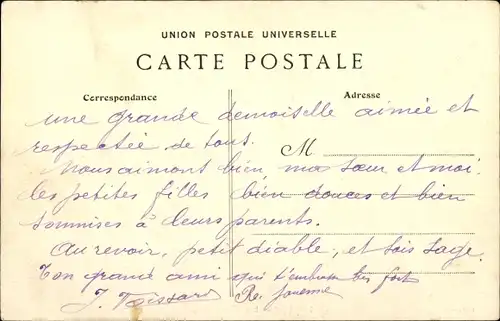 UNION POSTALE UNIVERSELLE
CARTE POSTALE
Correspondance
Adresse
M
une grande demoiselle aimée et
respectée de tous.
Nous aimont bien, ma sœur et moi
les petites filles bien douces et bien
soumises à leurs parents.
Au revoir, petit diable, et sois sage.
Ton grand ami qui t'embrasse bien fort
J.